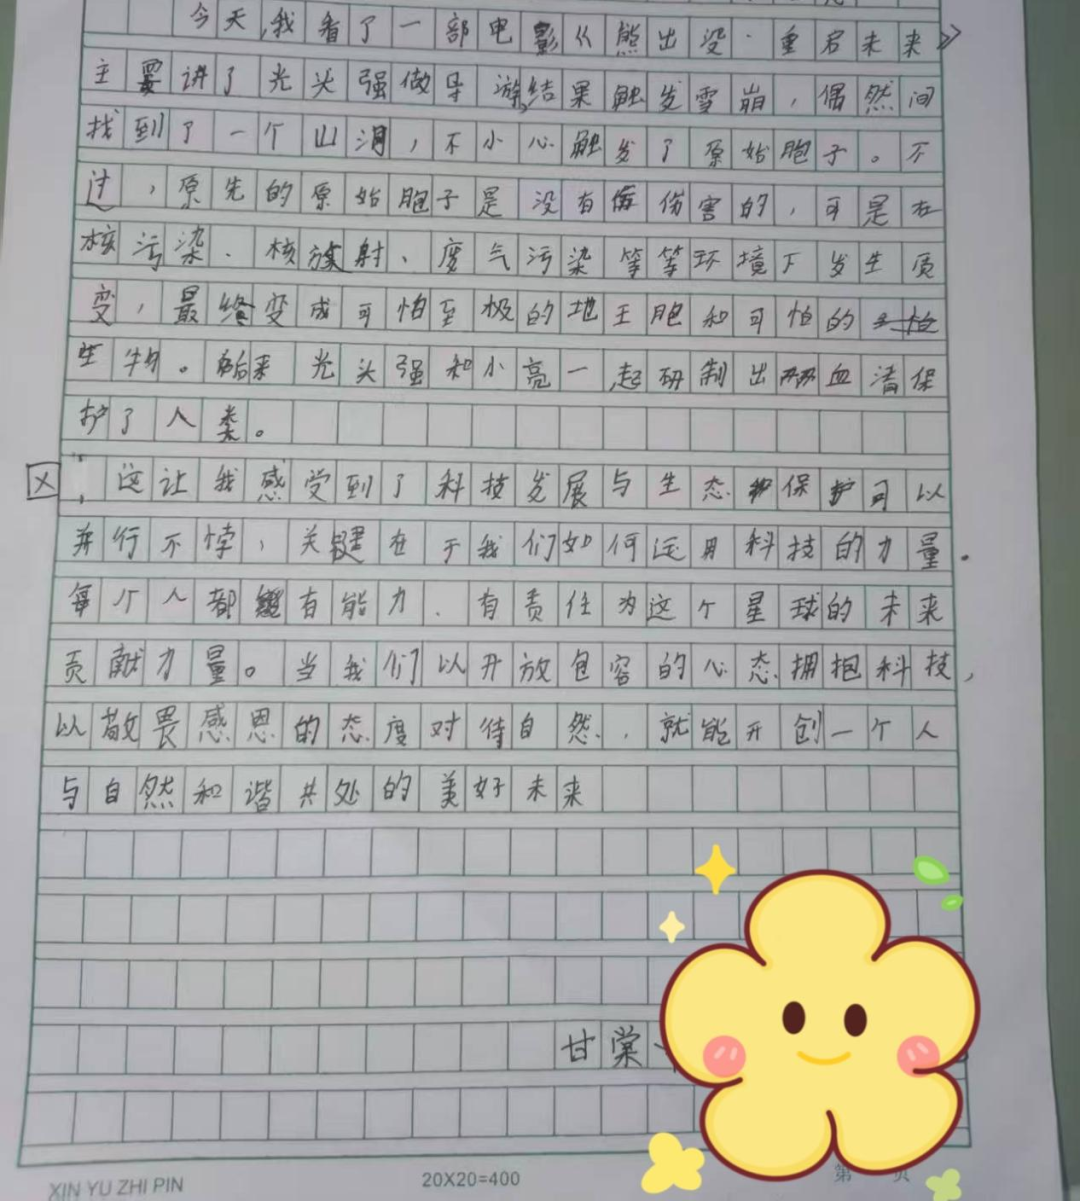 今天,我看了一部电影《熊出没·重启未来》
主要讲了光头强做导游,结果触发雪崩，偶然间
找到了一个山洞，不小心触发了原始胞子。不
过，原先的原始胞子是没有伤害的，可是在
核污染、核放射、废气污染等等环境下发生质
变，最终变成可怕至极的地王胞和可怕的
生物。后来光头强和小亮一起研制出血清保
护了人类。
这让我感受到了科技发展与生态保护可以
并行不悖，关键在于我们如何运用科技的力量.
每个人都有能力、有责任为这个星球的未来
贡献力量。当我们以开放包容的心态拥抱科技,
以敬畏感恩的态度对待自然，就能开创一个人
与自然和谐共处的美好未来
甘棠
XIN YU ZHI PIN
20X20=400
第 页